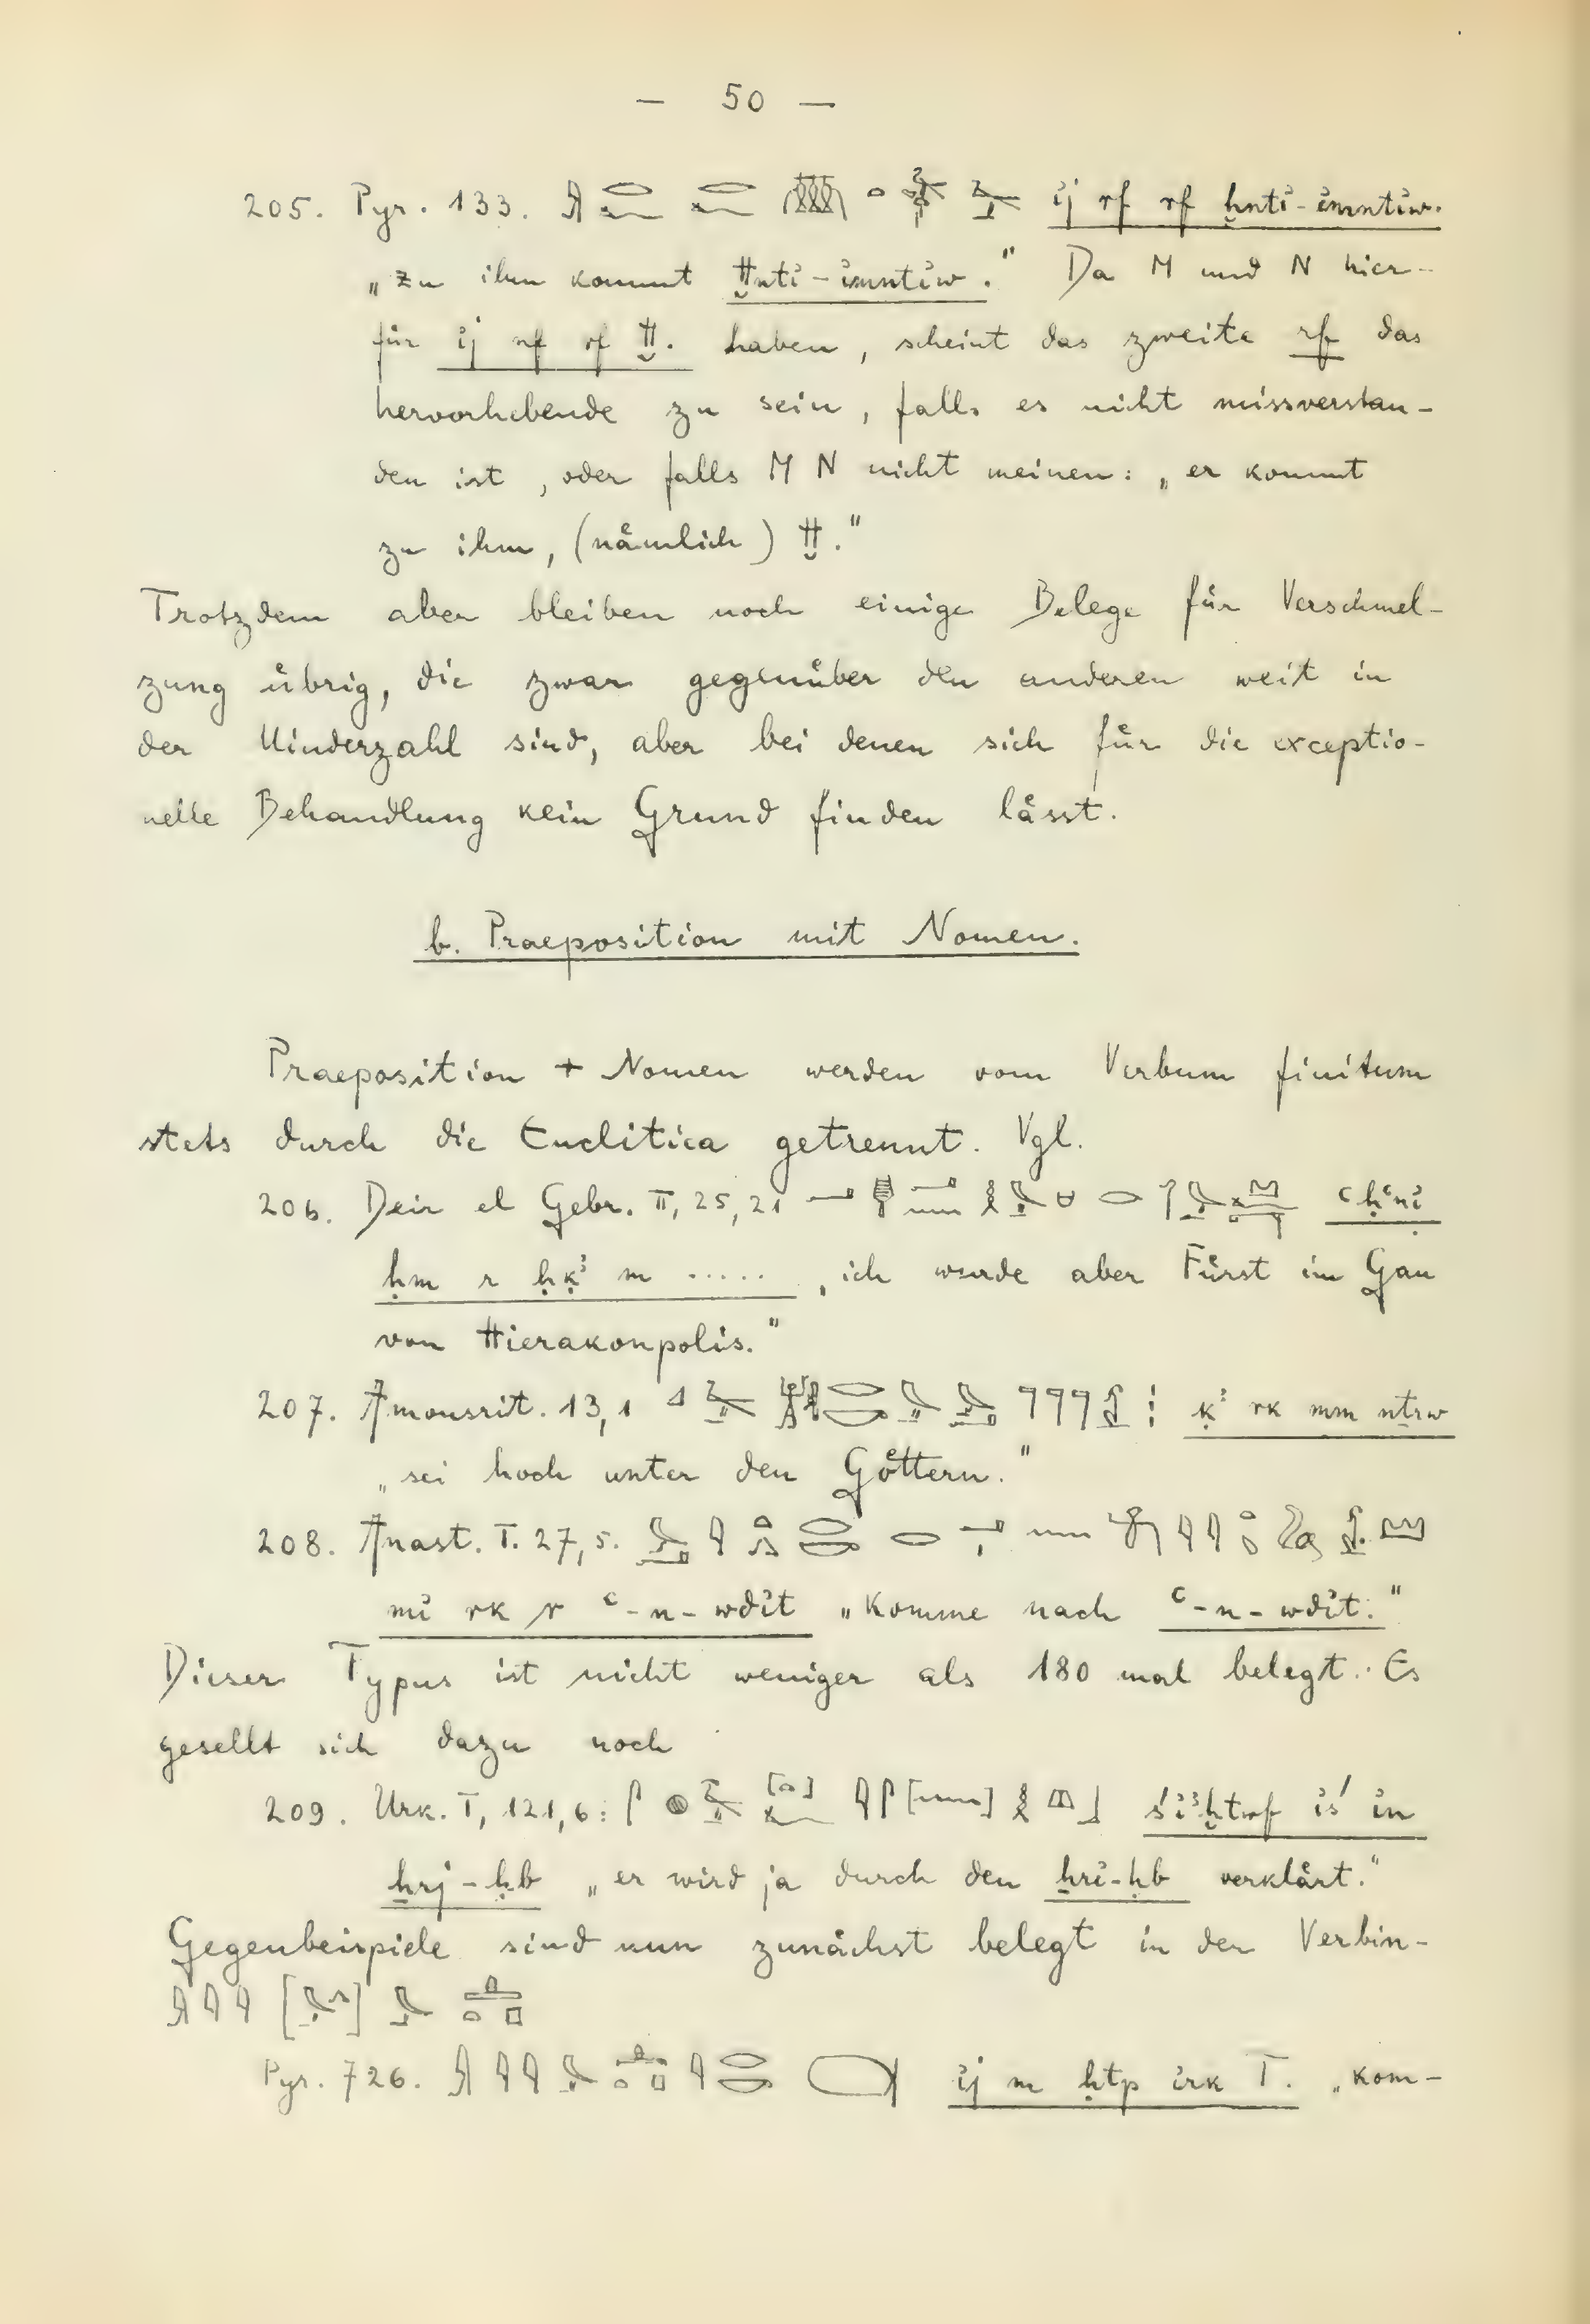 — 50 —
205. Pyr. 133. ij rf rf ḫntỉ-ỉmntỉw.
„zu ihm kommt Ḫntỉ-ỉmntỉw." Da M und N hier-
für ij nf rf Ḫ. haben, scheint das zweite rf das
hervorhebende zu sein, falls es nicht missverstan-
den ist, oder falls M N nicht meinen: „er kommt
zu ihm, (nämlich) Ḫ."
Trotzdem aber bleiben noch einige Belege für Verschmel-
zung übrig, die zwar gegenüber den anderen weit in
der Minderzahl sind, aber bei denen sich für die exceptio-
nelle Behandlung kein Grund finden lässt.
b. Praeposition mit Nomen.
Praeposition + Nomen werden vom Verbum finitum
stets durch die Enclitica getrennt. Vgl.
206. Deir el Gebr. II, 25, 21 ꜥḥꜥnỉ
ḥm r ḥḳꜣ m ..... „ich wurde aber Fürst im Gau
von Hierakonpolis."
207. Amonsrit. 13,1 ḳꜣ rk mm nṯrw
„sei hoch unter den Göttern."
208. Anast. I. 27,5.
mỉ rk r ꜥ-n-wdỉt „Komme nach ꜥ-n-wdỉt."
Dieser Typus ist nicht weniger als 180 mal belegt. Es
gesellt sich dazu noch
209. Urk. I, 121,6: ỉś ỉn
ẖrj-ḥb „er wird ja durch den ẖrỉ-ḥb verklärt."
Gegenbeispiele sind nun zunächst belegt in der Verbin-
Pyr. 726. ij m ḥtp ỉrk T. „kom-